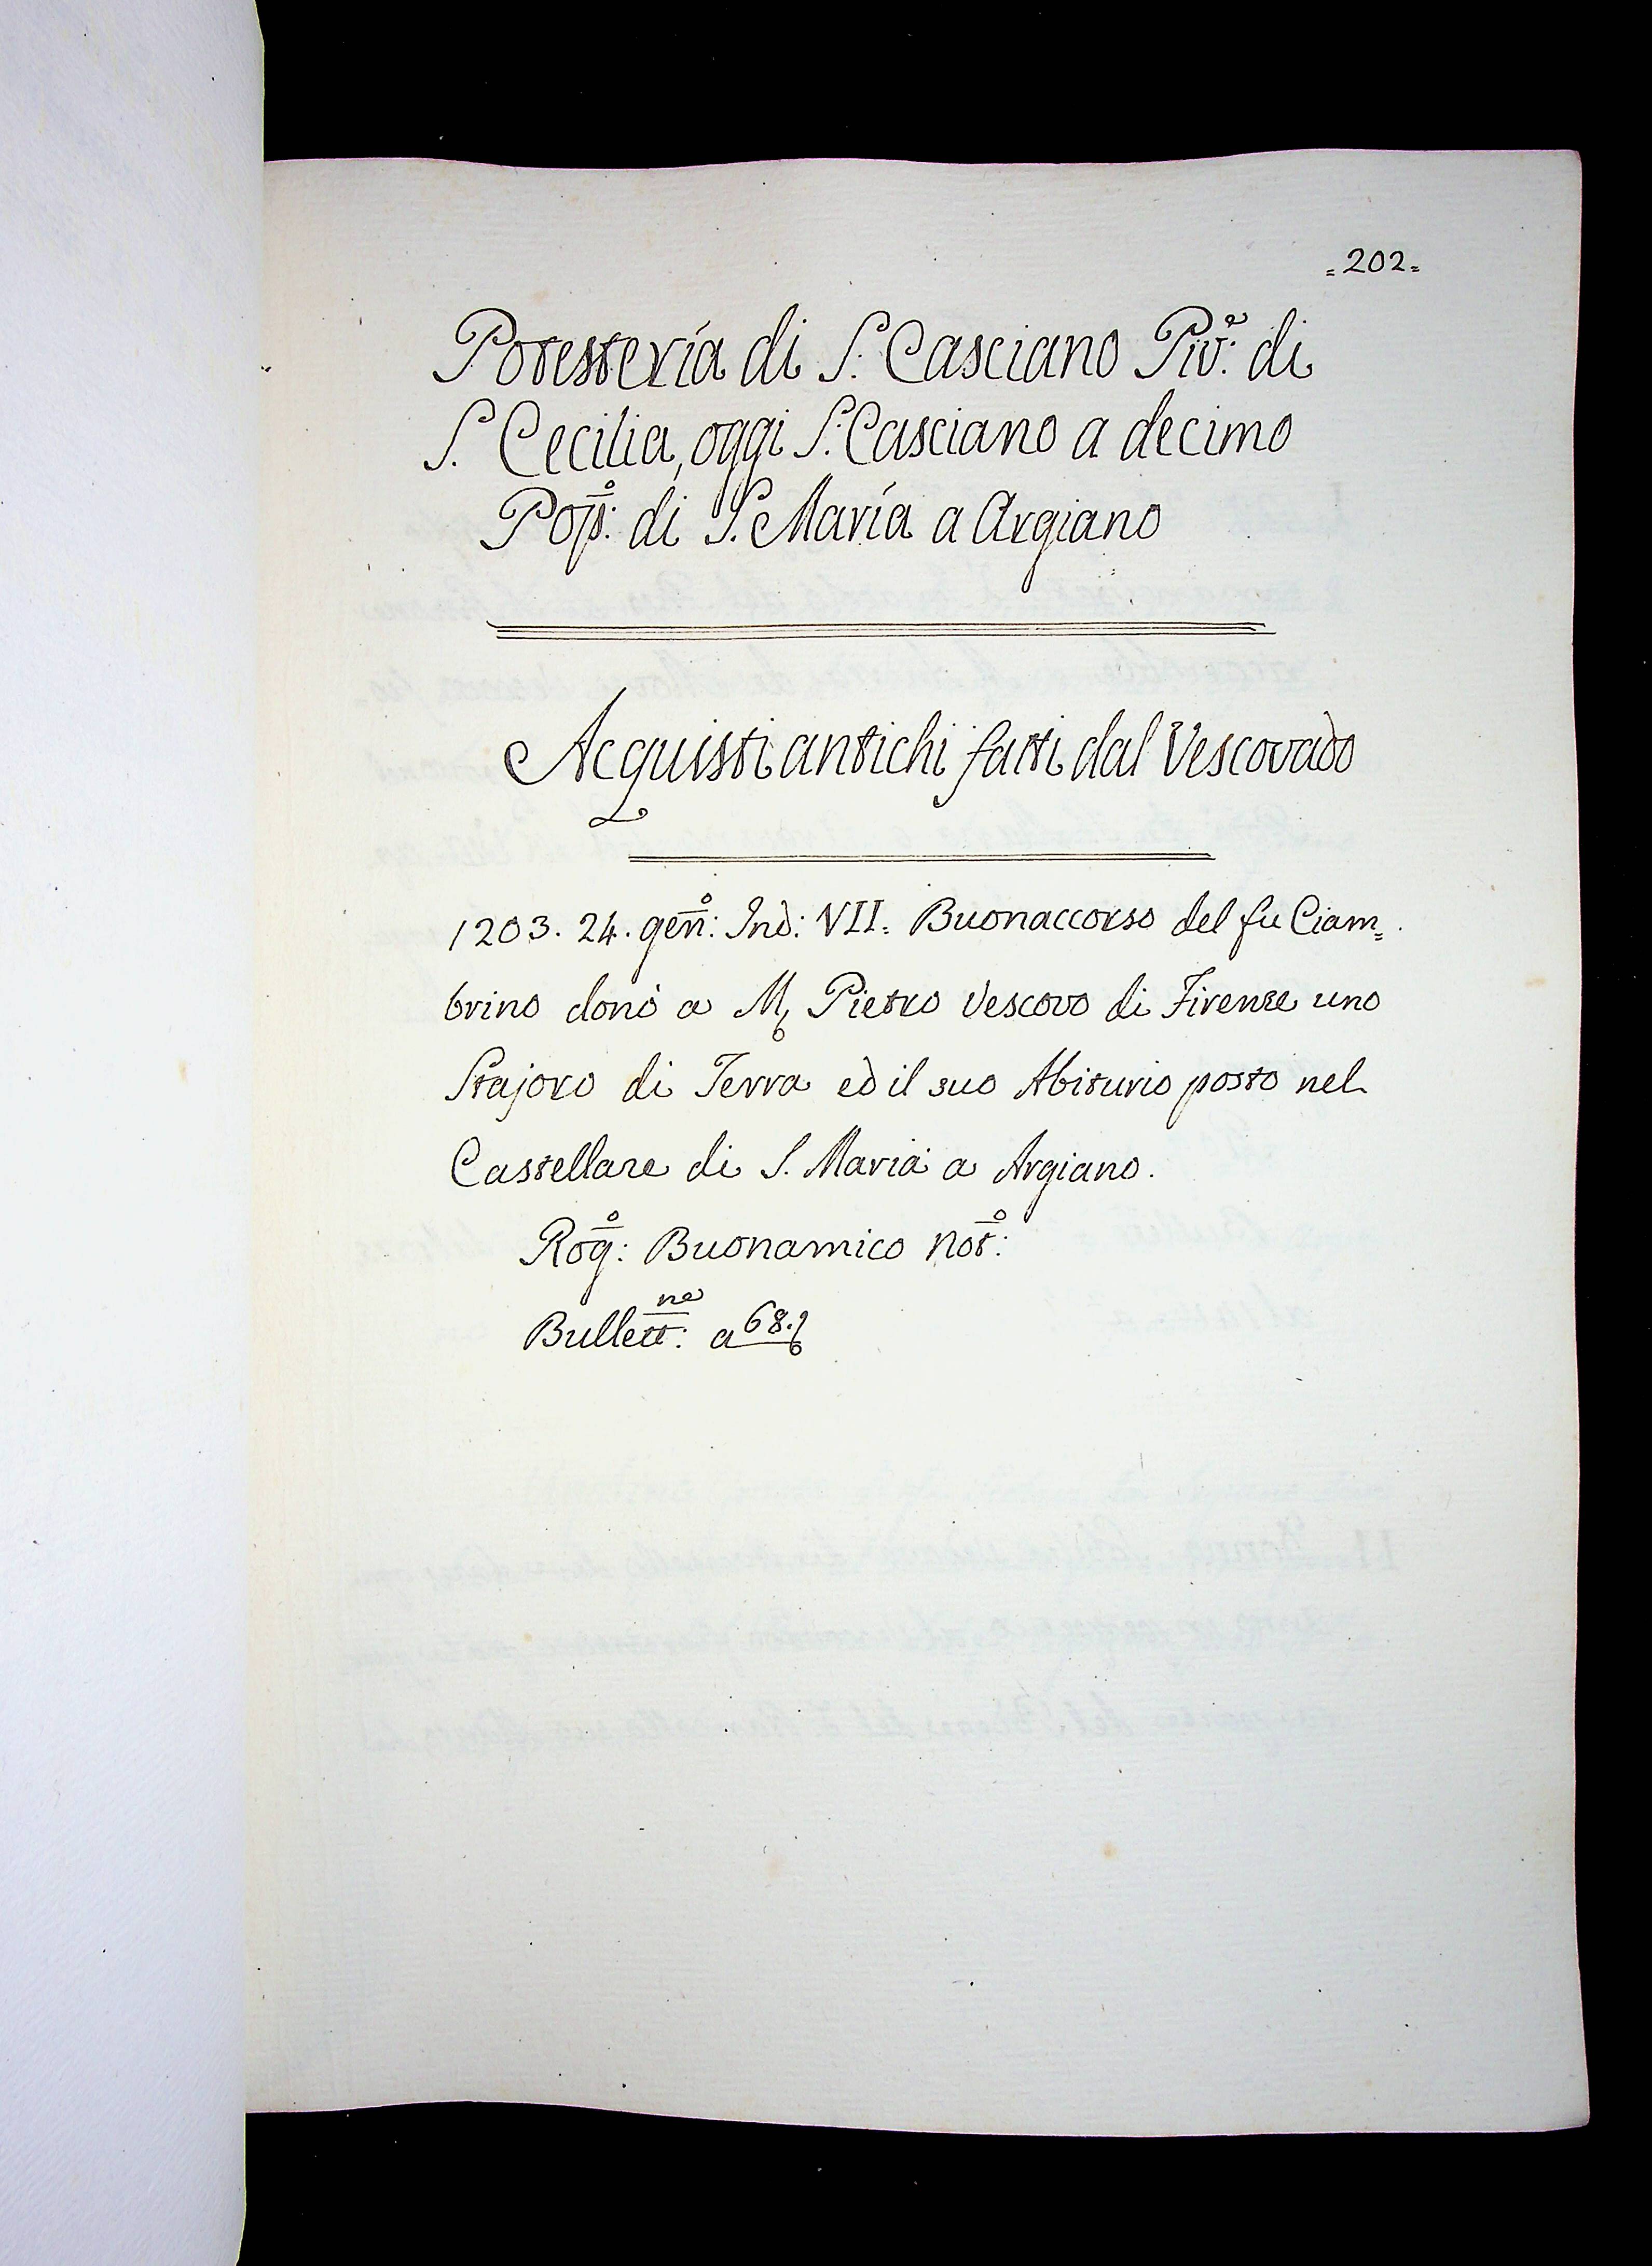 =202=
Potesteria di S. Casciano Piv.e di
S. Cecilia, oggi S. Casciano a decimo
Pop.o: di S. Maria a Argiano
Acquisti antichi fatti dal Vescovado
1203. 24. gen.o: Ind: VII. Buonaccorso del fu Ciam=
brino donò a M. Pietro Vescovo di Firenze uno
Stajoro di Terra ed il suo Abiturio posto nel
Castellare di S. Maria a Argiano.
Rog.o: Buonamico Not.o:
Bullett.ne: a 68.